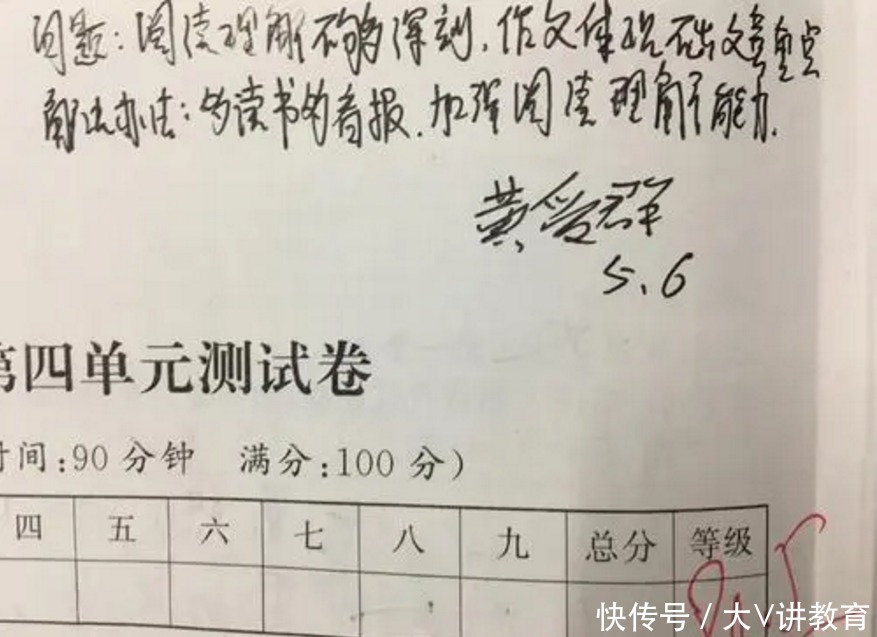 问题:阅读理解不够深刻,作文体现不出文章重点
解决办法:多读书多看报.加强阅读理解能力.
黄爱群
5.6
第四单元测试卷
时间:90分钟 满分:100分)
四 五 六 七 八 九 总分 等级
快传号/大V讲教育